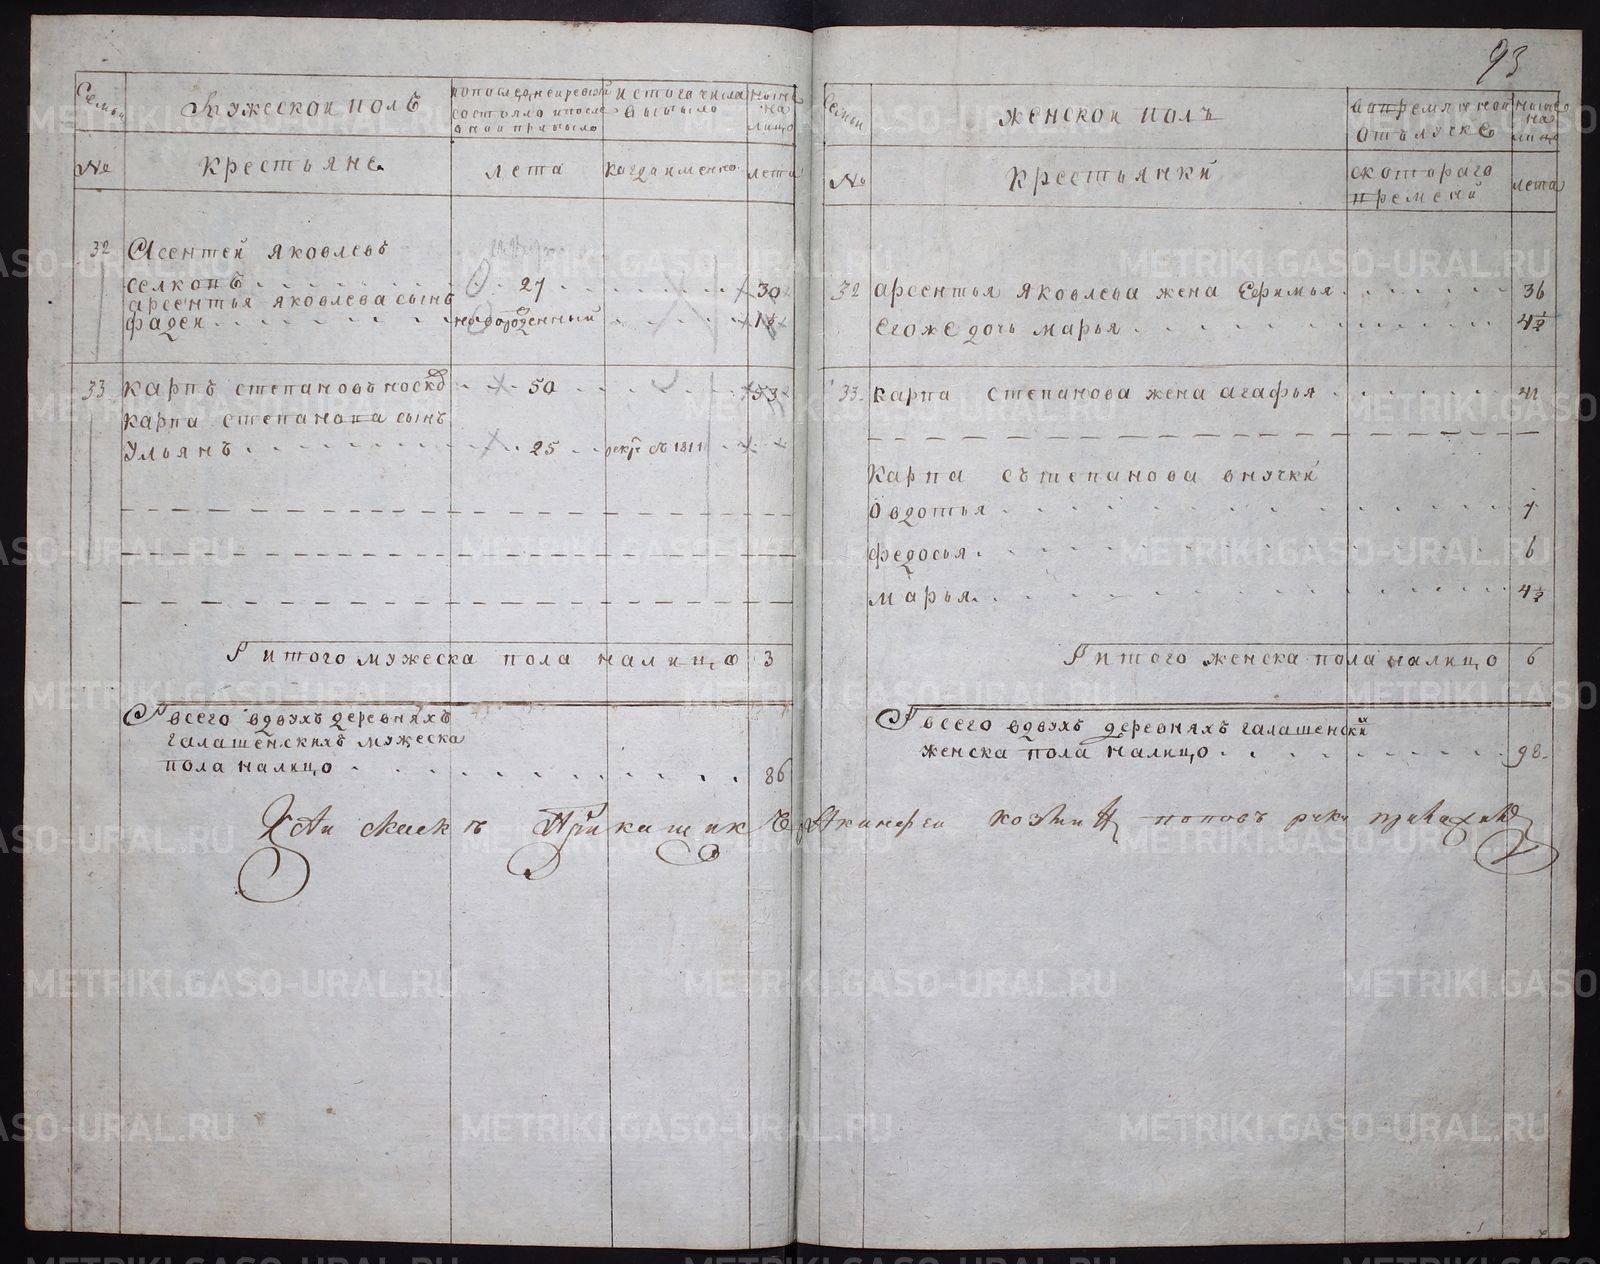 93
Семьи
Мужескои полъ
попоследнеи ревизи
состояло ипосле
онои прибыло
истого числа
выбыло
ныне
на
лицо
№
Крестьяне
лета
когда имено
лета
32
Арсентеи яковлевъ
селкопъ
27
30
арсентья яковлева сынъ
фадеи
новорожденныи
33
карпъ степановъ носко
50
53
карпа степанова сынъ
Ульянъ
25
рекр въ 1811
Итого мужеска пола налицо
3
Всего вдвухъ деревняхъ
галашенскихъ мужеска
пола налицо
86
Семьи
женскои полъ
вовремяннои
отълучке
ныне
на
лицо
№
крестьянки
скотораго
времени
лета
32
арсентья яковлева жена Ефимья
36
Егоже дочь марья
4½
33
карпа степанова жена агафья
карпа сътепанова внучки
Овдотья
7
федосья
6
марья
4½
Итого женска пола налицо
6
Всего вдвухъ деревняхъ галашенски
женска пола налицо
98
Приказщикъ поповъ руку приложилъ
METRIKI.GASO-URAL.RU